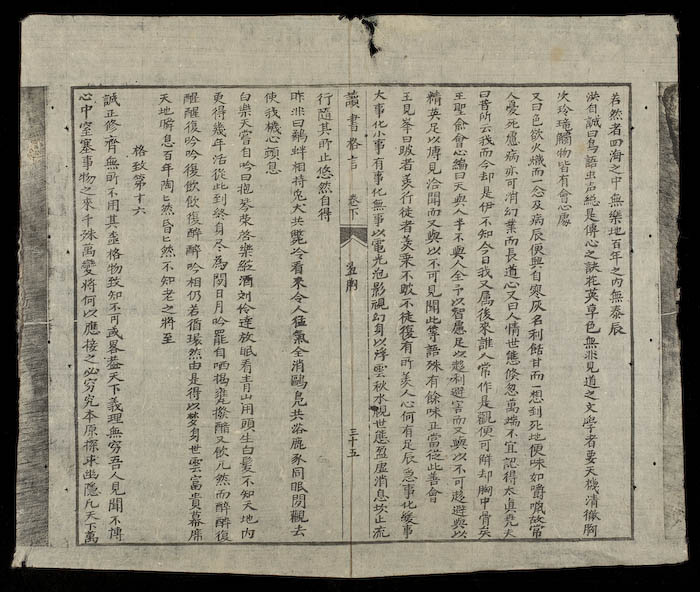 若然者四海之中無樂地百年之內無泰辰
洪自誠曰鳥語虫声總是傳心之訣花英草色無非見道之文學者要天機清徹胸
次玲瓏觸物皆有會心處
又曰色欲火熾而一念及病辰便興自寒灰名利飴甘而一想到死地便味如嚼蠟故常
人憂死慮病亦可消幻業而長道心又曰人情世態倏忽萬端不宜認得太真堯夫
曰昔所云我而今却是伊不知今日我又屬後來誰人常作是觀便可解却胸中罥矣
王聖俞會心編曰天與人乎不與人全予以智慮足以趨利避害而又與以不可趨避與以
精英足以博見洽聞而又與以不可見聞此等語殊有餘味正當從此善會
王見峯曰跛者羡行徒者羡乗不跛不徒復有所羡人心何有足辰急事化緩事
大事化小事有事化無事以電光泡影視幻身以浮雲秋水視世態盈虛消息坎止流
讀書格言 卷下 三十五
行隨其所止悠然自得
昨非曰鷸蚌相持兔犬共斃冷看來令人猛氣全消鷗鳧共浴鹿豕同眠閑觀去
使我機心頓息
白樂天嘗自吟曰抱琴荣啓樂縱酒刘伶達放眼看青山用頭生白髮不知天地內
更得幾年活從此到終身尽為閑日月吟罷自哂揭甕撥醅又飲兀然而醉醉復
醒醒復吟吟復飲飲復醉醉吟相仍若循環然由是得以夢身世雲富貴幕席
天地瞬息百年陶〻然昏〻然不知老之將至
格致第十六
誠正修齊無所不用其盡格物致知不可或畧盖天下義理無窮吾人見聞不博
心中窒塞事物之來千殊萬變將何以應接之必窮究本原探求幽隱凡天下萬